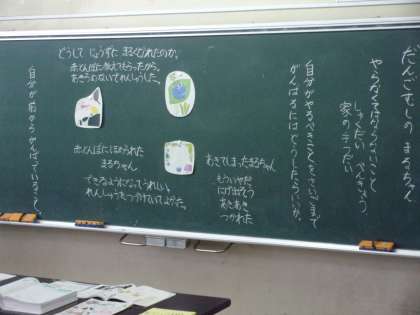 だんごむしの まるちゃん
やらなくてはならないこと
しゅくだい べんきょう
家のてつだい
自分がやるべきことをさいごまで
がんばるにはどうしたらいいか。
どうして じょうずに まるくなれたのか。
赤とんぼに教えてもらったから。
あきらめないでれんしゅうした。
あきてしまったまるちゃん
もういやだ
にげだそう
あきあき
つかれた
赤とんぼにほめられた
まるちゃん
できるようになってうれしい。
れんしゅうをつづけていてよかった。
自分が前からがんばっていること